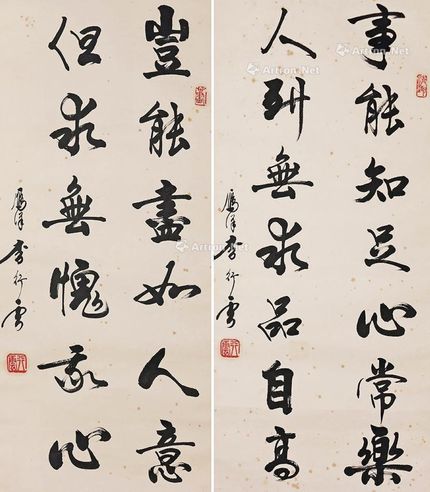 事能知足心常樂
人到無求品自高
李行雲
豈能盡如人意
但求無愧我心
李行雲
Artron.Net
Artron.Net
Artron.Net
Artron.Net